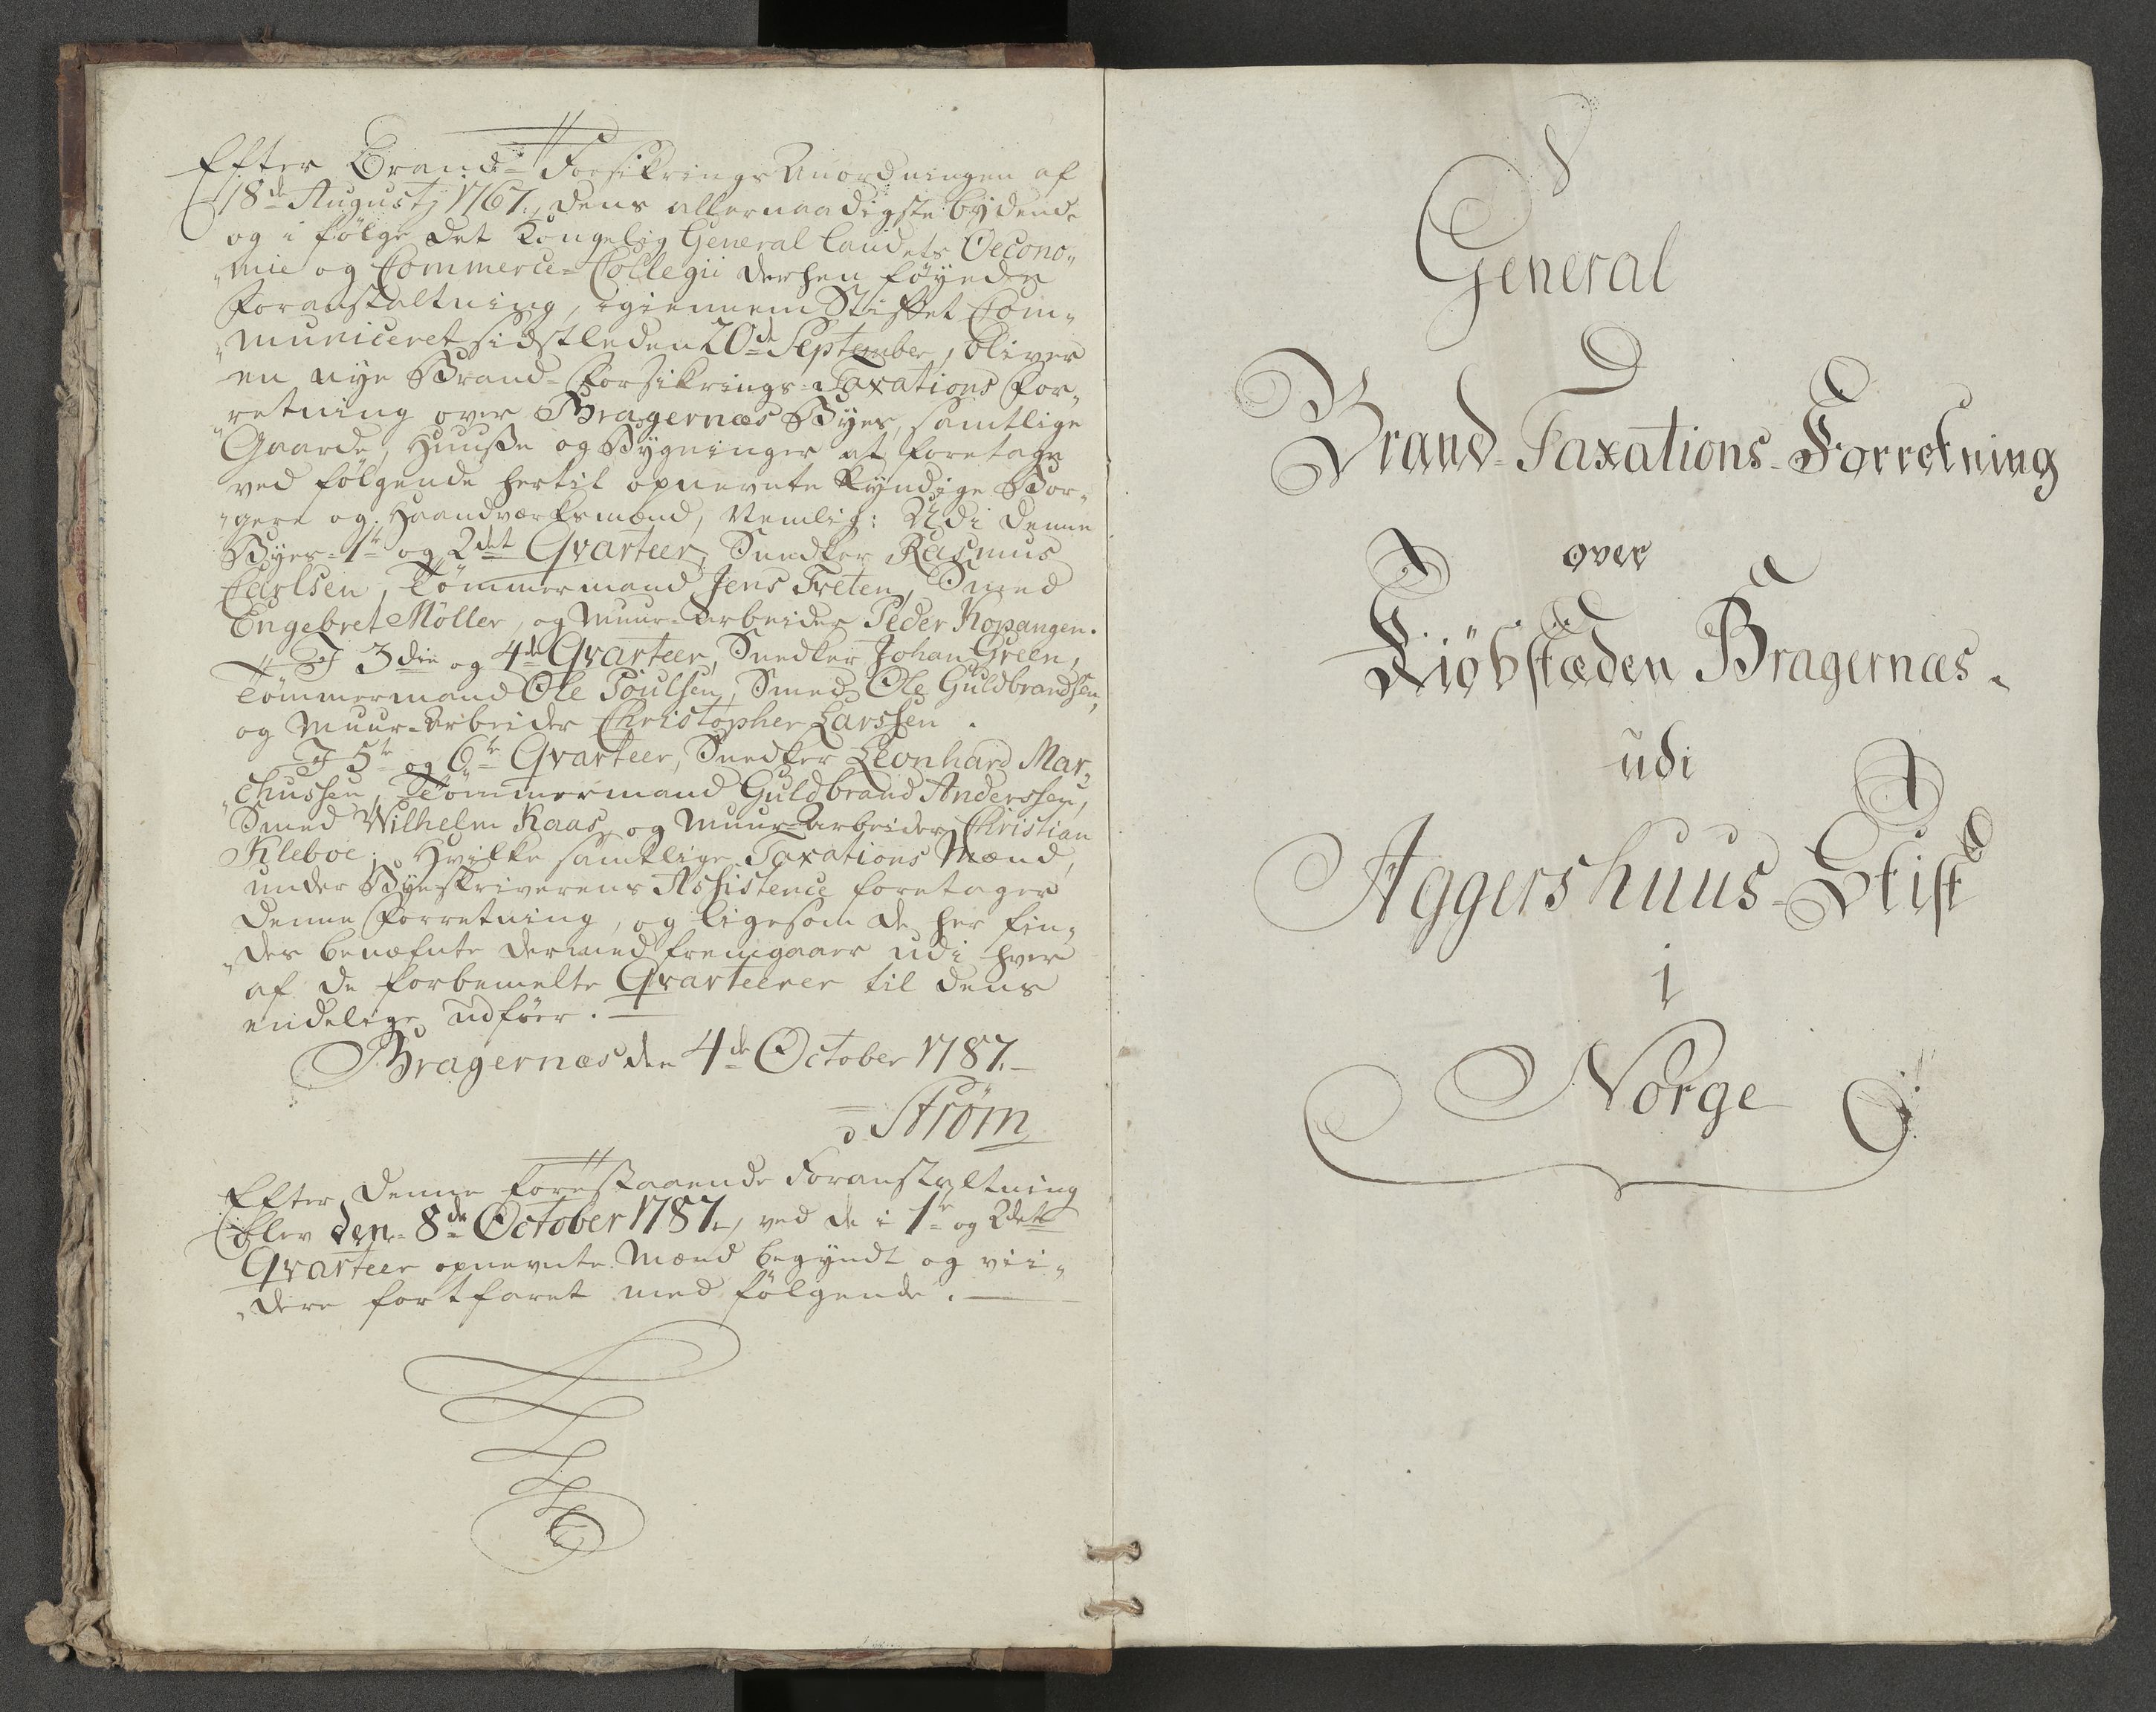 Efter Brand-Forsikrings Anordningen af
18de Augustj 1767, dens allernaadigste bydende
og i følge det Kongelig General Landets Oecono„
„mie og Commerce-Collegii derhen føyede
Foranstaltning, igiennem Stiftet Com„
„municeret sidstleden 20de September, bliver
en nye Brand-Forsikrings-Taxations For„
„retning over Bragernæs Byes, samtlige
Gaarde, Huuse og Bygninger at foretage
ved følgende hertil opnevnte kyndige Bor„
„gere og Haandværksmænd, Nemlig: Udi denne
Byes 1te og 2det Qvarteer, Snedker Rasmus
Carlsen, Tømmermand Jens Treten, Smed
Engebret Møller, og Muur-Arbeider Peder Kopangen.
I 3die og 4de Qvarteer, Snedker Johan Green,
Tømmermand Ole Poulsen, Smed Ole Guldbrandsen,
og Muur-Arbeider Christopher Larssen.
I 5te og 6te Qvarteer, Snedker Leonhard Mar„
„chussen, Tømmermand Guldbrand Anderssen,
Smed Wilhelm Kaas, og Muur-Arbeider Christian
Kleboe; Hvilke samtlige Taxations Mænd,
under Byeskriverens Assistence foretager
denne Forretning, og ligesom de her fin„
„des benæfnte dermed fremgaaer udi hver
af de forbemelte Qvarteerer til dens
endelige udføer.
Bragernæs den 4de October 1787.
Strøm
Efter denne forestaaende Foranstaltning
blev den 8de October 1787, ved de i 1te og 2det
Qvarteer opnevnte Mænd begyndt og vii„
„dere fortfaret med følgende.
General
Brand-Taxations-Forretning
over
Kiøbstæden Bragernæs.
udi
Aggershuus-Stift
i
Norge